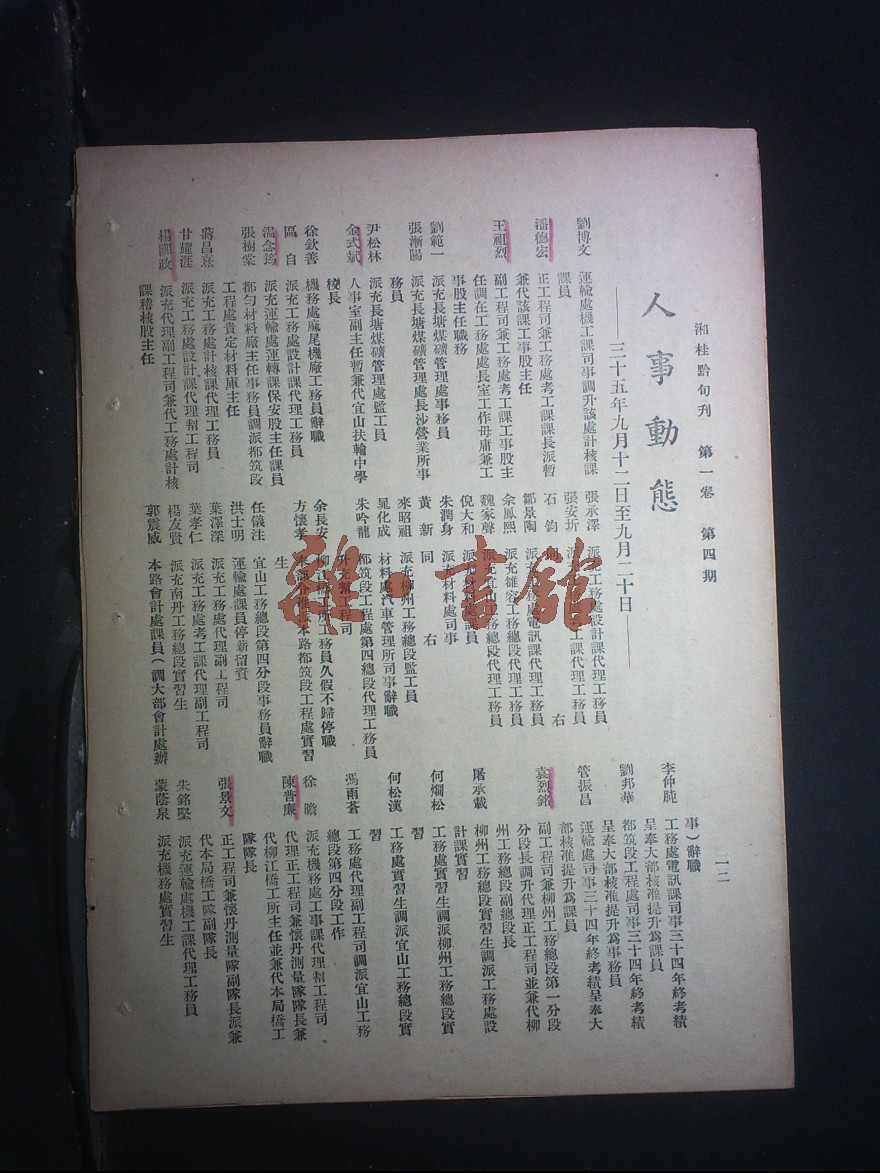 湘桂黔旬刊　第一卷　第四期
一二
人事動態
——三十五年九月十二日至九月二十日——
劉博文　運輸處機工課司事調升該處計核課
課員
潘德宏　正工程司兼工務處考工課課長派暫
兼代該課工事股主任
王祖烈　副工程司兼工務處考工課工事股主
任調在工務處處長室工作毋庸兼工
事股主任職務
劉範一　派充長塘煤礦管理處事務員
張漸陽　派充長塘煤礦管理處長沙營業所事
務員
尹松林　派充長塘煤礦管理處監工員
金式斌　人事室副主任暫兼代宜山扶輪中學
校長
徐欽善　機務處麻尾機廠工務員辭職
區　自　派充工務處設計課代理工務員
溫念鎢　派充運輸處運轉課保安股主任課員
張樹棠　都勻材料廠主任事務員調派都筑段
工程處貴定材料庫主任
蔣昌熹　派充工務處計核課代理工務員
甘耀涯　派充工務處設計課代理幫工程司
楊訓政　派充代理副工程司兼代工務處計核
課稽核股主任
張承澤　派充工務處設計課代理工務員
張安圻　派
工課代理工務員
石　鈞　同　右
鄒景陶　派充
處電訊課代理工務員
余鳳熙　派充雒容工務總段代理工務員
魏家聲　派充宜山工務總段代理工務員
倪大和　派充
課員
朱潤身　派充材料處司事
黃　新　同　右
來昭祖　派充柳州工務總段監工員
晁化成　材料處汽車管理所司事辭職
朱吟龍　都筑段工程處第四總段代理工務員
升充幫工程司
余長安　柳江橋工所工務員久假不歸停職
方懷孝　
派本路都筑段工程處實習
生
任儀注　宜山工務總段第四分段事務員辭職
洪士明　運輸處課員停薪留資
葉澤深　派充工務處代理副工程司
葉孝仁　派充工務處考工課代理副工程司
楊友賢　派充南丹工務總段實習生
郭震威　本路會計處課員（調大部會計處辦
事）辭職
李仲肫　工務處電訊課司事三十四年終考績
呈奉大部核准提升為課員
劉邦華　都筑段工程處司事三十四年終考績
呈奉大部核准提升為事務員
管振昌　運輸處司事三十四年終考績呈奉大
部核准提升為課員
袁烈銘　副工程司兼柳州工務總段第一分段
分段長調升代理正工程司並兼代柳
州工務總段副總段長
屠承載　柳州工務總段實習生調派工務處設
計課實習
何爛松　工務處實習生調派柳州工務總段實
習
何松漢　工務處實習生調派宜山工務總段實
習
馮雨蒼　工務處代理副工程司調派宜山工務
總段第四分段工作
徐　瞻　派充機務處工事課代理幫工程司
陳普廉　代理正工程司兼懷丹測量隊隊長兼
代柳江橋工所主任並兼代本局橋工
隊隊長
張景文　正工程司兼懷丹測量隊副隊長派兼
代本局橋工隊副隊長
朱銘堅　派充運輸處機工課代理工務員
蒙蔭泉　派充機務處實習生
雜·書館